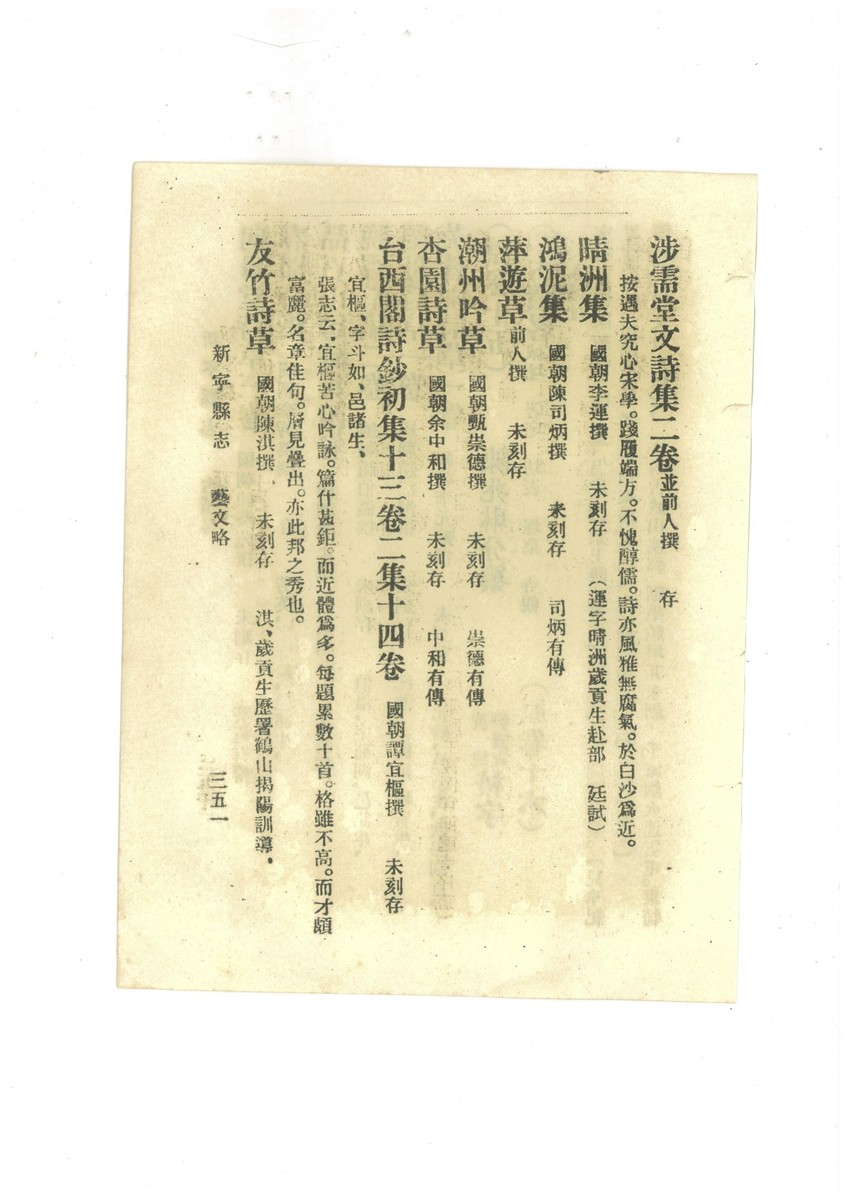 涉需堂文詩集二卷並前人撰　存
按遇夫究心宋學。踐履端方。不愧醇儒。詩亦風雅無腐氣。於白沙爲近。
晴洲集　國朝李運撰　未刻存　（運字晴洲歲貢生赴部　廷試）
鴻泥集　國朝陳司炳撰　未刻存　司炳有傳
萍遊草前人撰　未刻存
潮州吟草　國朝甄崇德撰　未刻存　崇德有傳
杏園詩草　國朝余中和撰　未刻存　中和有傳
台西閣詩鈔初集十三卷二集十四卷　國朝譚宜樞撰　未刻存
宜樞、字斗如、邑諸生、
張志云、宜樞苦心吟詠。篇什甚鉅。而近體爲多。每題累數十首。格雖不高。而才頗
富麗。名章佳句。層見疊出。亦此邦之秀也。
友竹詩草　國朝陳淇撰、未刻存　淇、歲貢生歷署鶴山揭陽訓導、
新寧縣志　藝文略　三五一